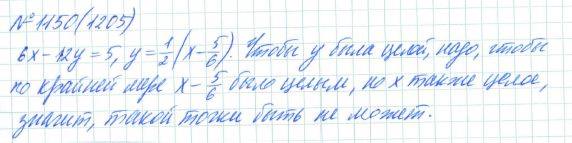 №1150(1205)
6x-12y=5, y=\frac{1}{2}(x-\frac{5}{6}). Чтобы y была целой, надо, чтобы
по крайней мере x-\frac{5}{6} было целым, но x также целое,
значит, такой точки быть не может.